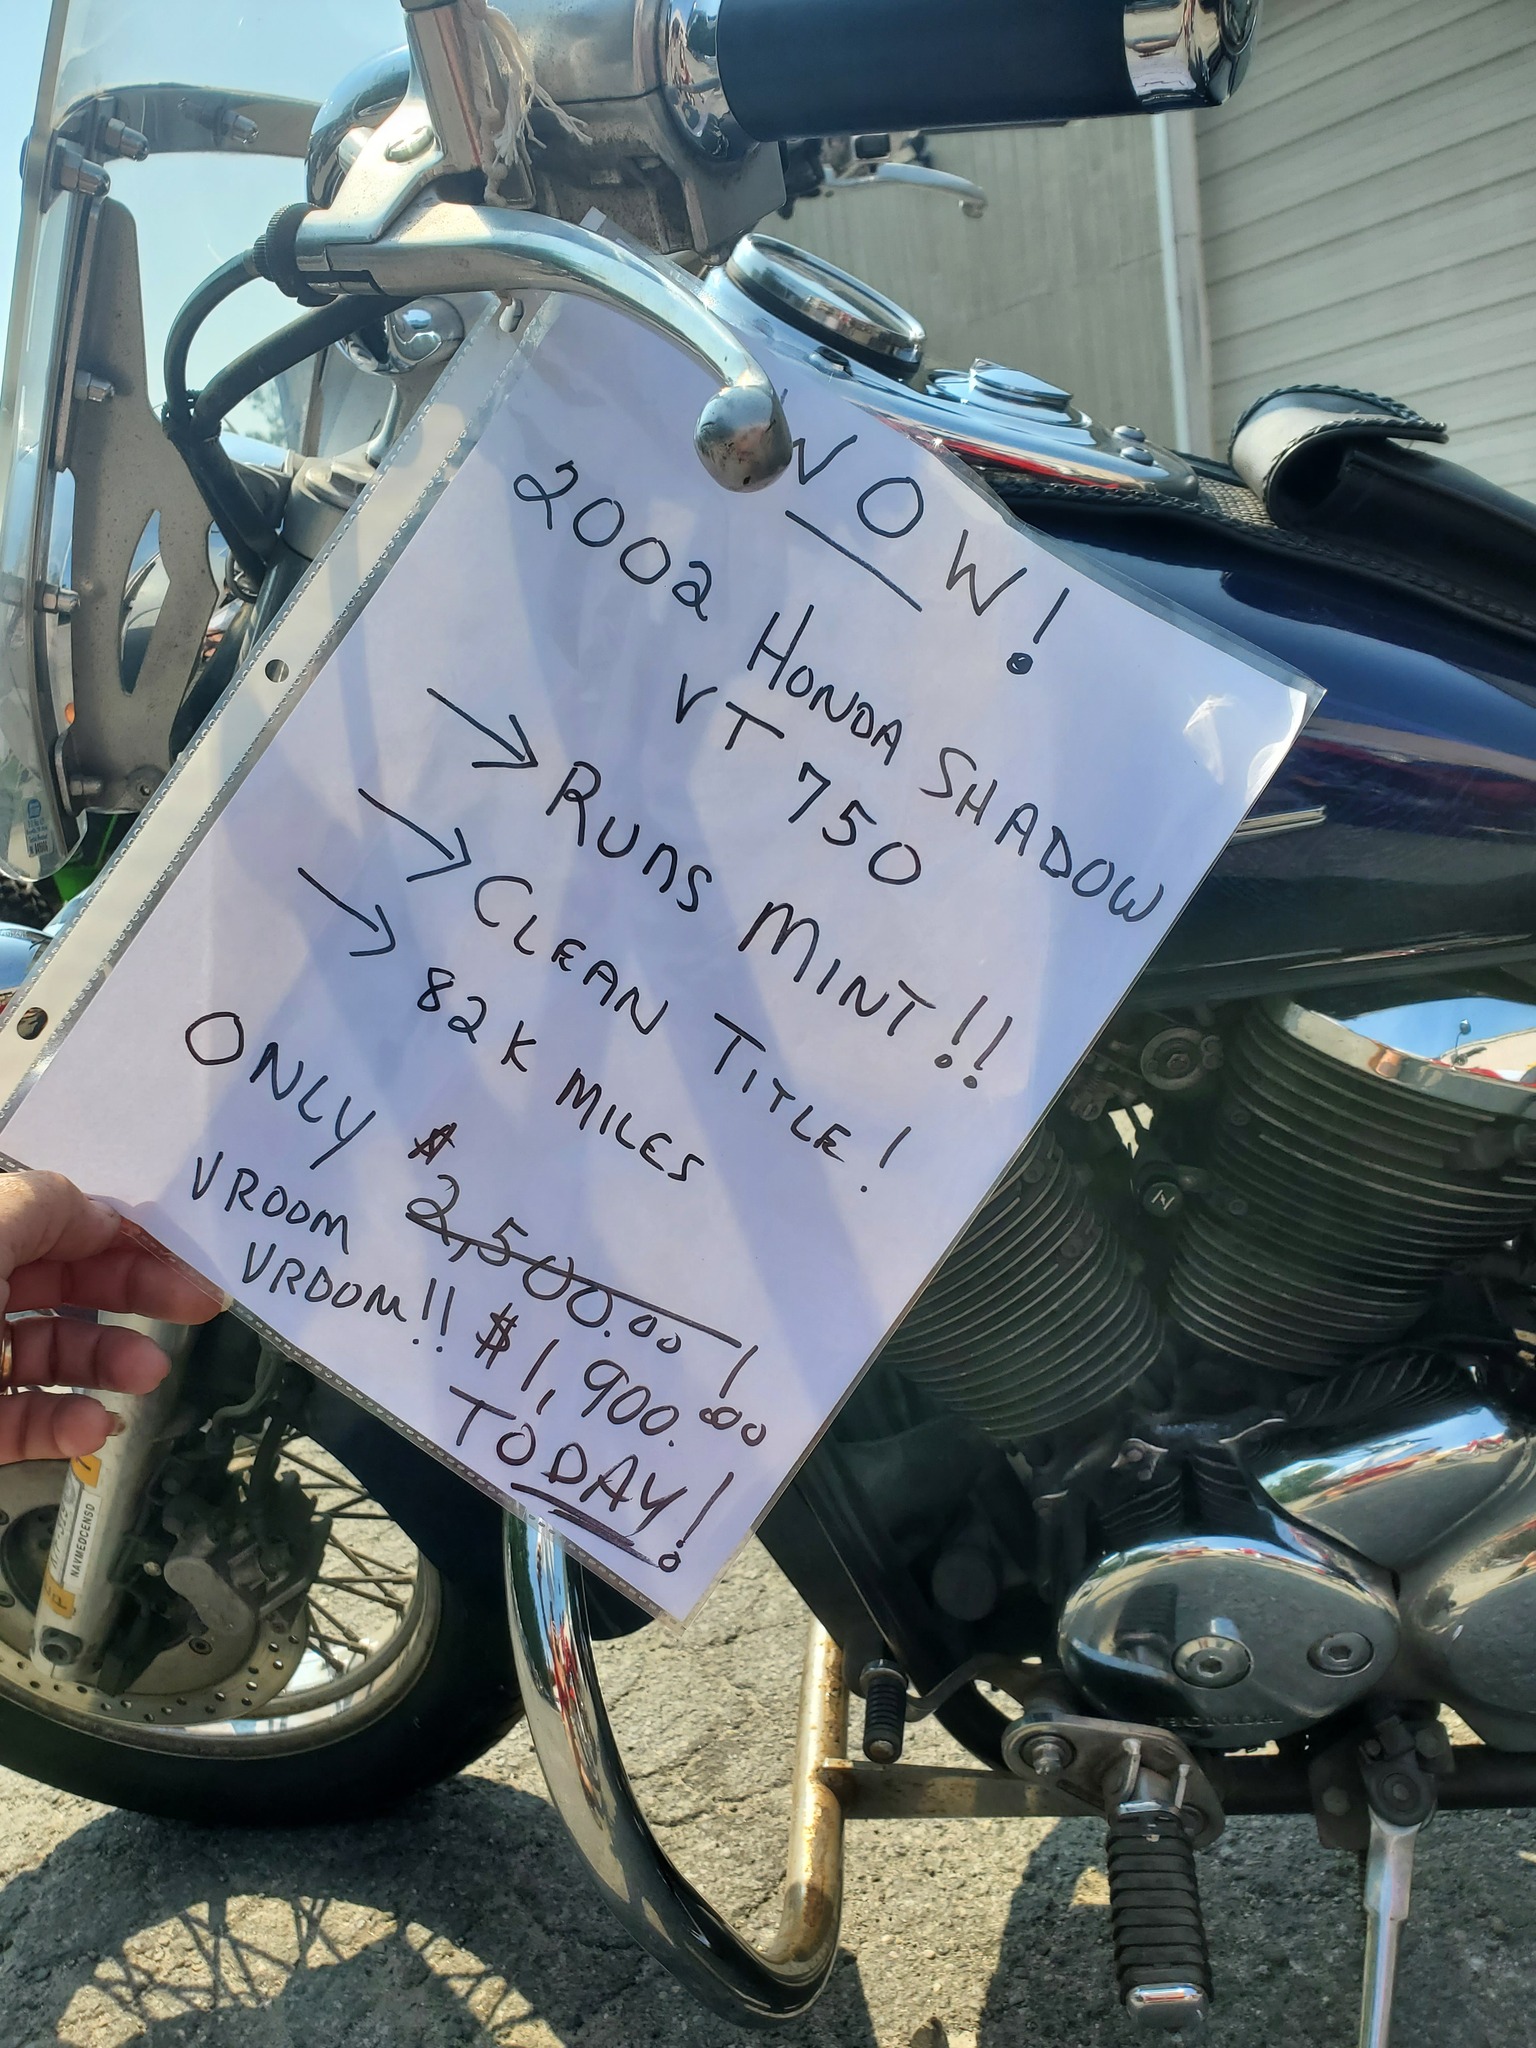 WOW!
2002 HONDA SHADOW
VT 750
→ RUNS MINT!!
→ CLEAN TITLE!
→ 82K MILES
ONLY $2,500.00!
VROOM
VROOM!! $1,900.00
TODAY!
NAVMEDCENSD
HONDA